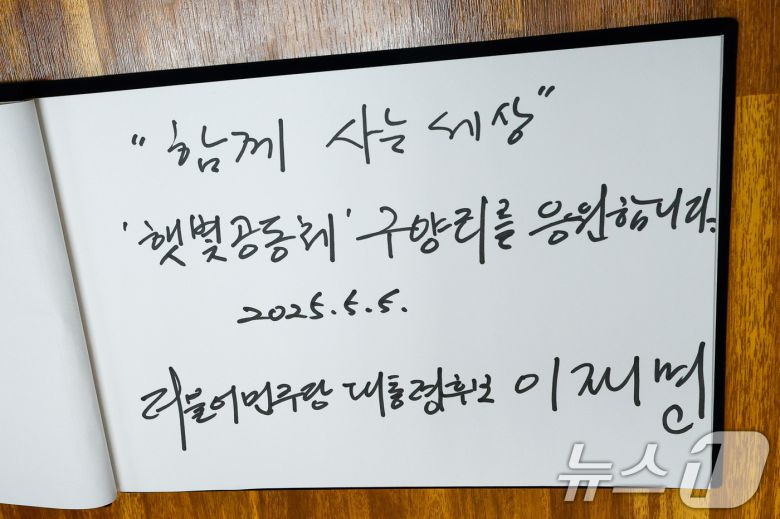 "함께 사는 세상"
'햇빛공동체' 구양리를 응원합니다.
2025.5.5.
더불어민주당 대통령후보 이재명
뉴스1